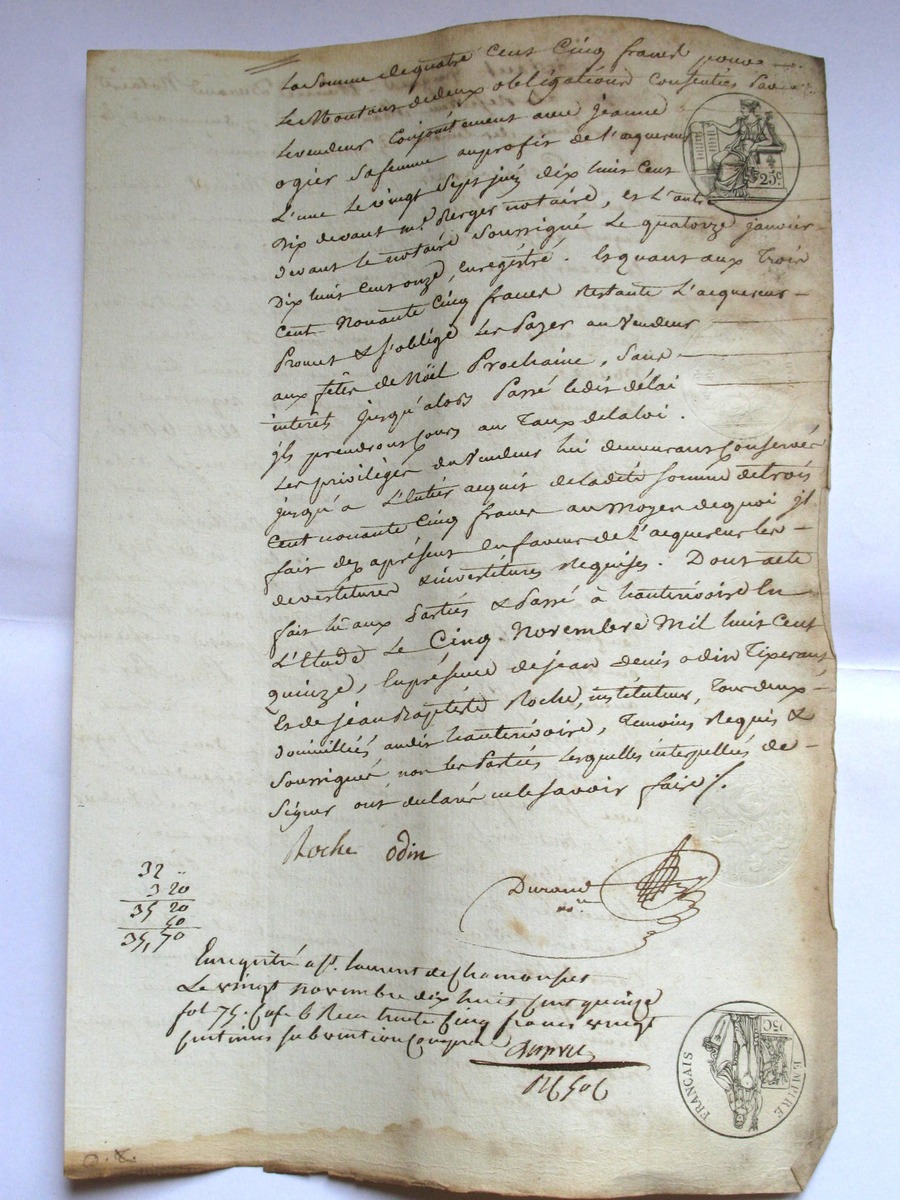 La Somme de quatre Cent Cinq francs pour
Le Montant de deux obligations Consenties Par
Le vendeur Conjointement avec jeanne
ogier sa femme au profit de l'acquereur
L'une Le vingt Sept juin dix huit Cent
Dix devant me Berger notaire, et L'autre
devant le notaire Soussigné Le quatorze janvier
Dix huit Cent onze, enregistré. Et quant aux Trois
Cent Nonante Cinq francs restants L'acquereur
Promet & s'oblige Les Payer au Vendeur
aux fêtes de Noël Prochaine, Sans
intérêts jusqu'alors Passé Ledit délai
ils prendront Cours au Taux de la loi.
Les privilèges du Vendeur lui demeurant Conservés
jusqu'à L'entier acquit de ladite Somme de trois
Cent nonante Cinq francs au moyen de quoi il
fait dez aprésent en faveur de L'acquereur les
devestitures & investitures Requises. Dont acte
fait lû aux Parties & Passé à hauterivoire En
L'Etude Le Cinq Novembre Mil huit Cent
quinze, En présence de jean denis odin Tixerant
Et de jean Baptiste Roche, instituteur, Tous deux
domiciliés audit hauterivoire, Temoins Requis &
Soussignés non les Parties Lesquelles interpellées de
Signer ont declaré ne le Savoir faire ./.
Roche odin
Durand
nre
32 "
3 20
35 20
50
35,70
25c.
Enregistré a St. laurent de Chamousset
Le vingt novembre dix huit Cent quinze
fol 75. Case 6 Reçu trente Cinq francs vingt
Centimes subvention Comprise
EMPIRE FRANÇAIS
75C